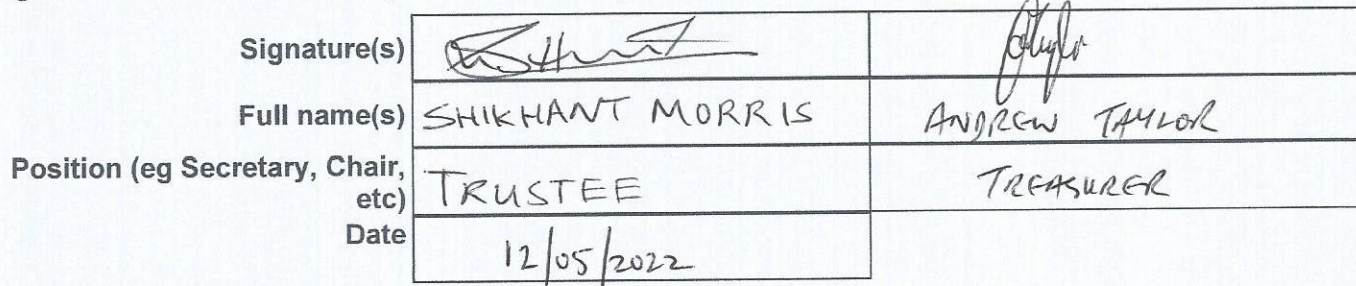 Signature(s)
Full name(s) SHIKHANT MORRIS ANDREW TAYLOR
Position (eg Secretary, Chair,
etc) TRUSTEE TREASURER
Date
12/05/2022